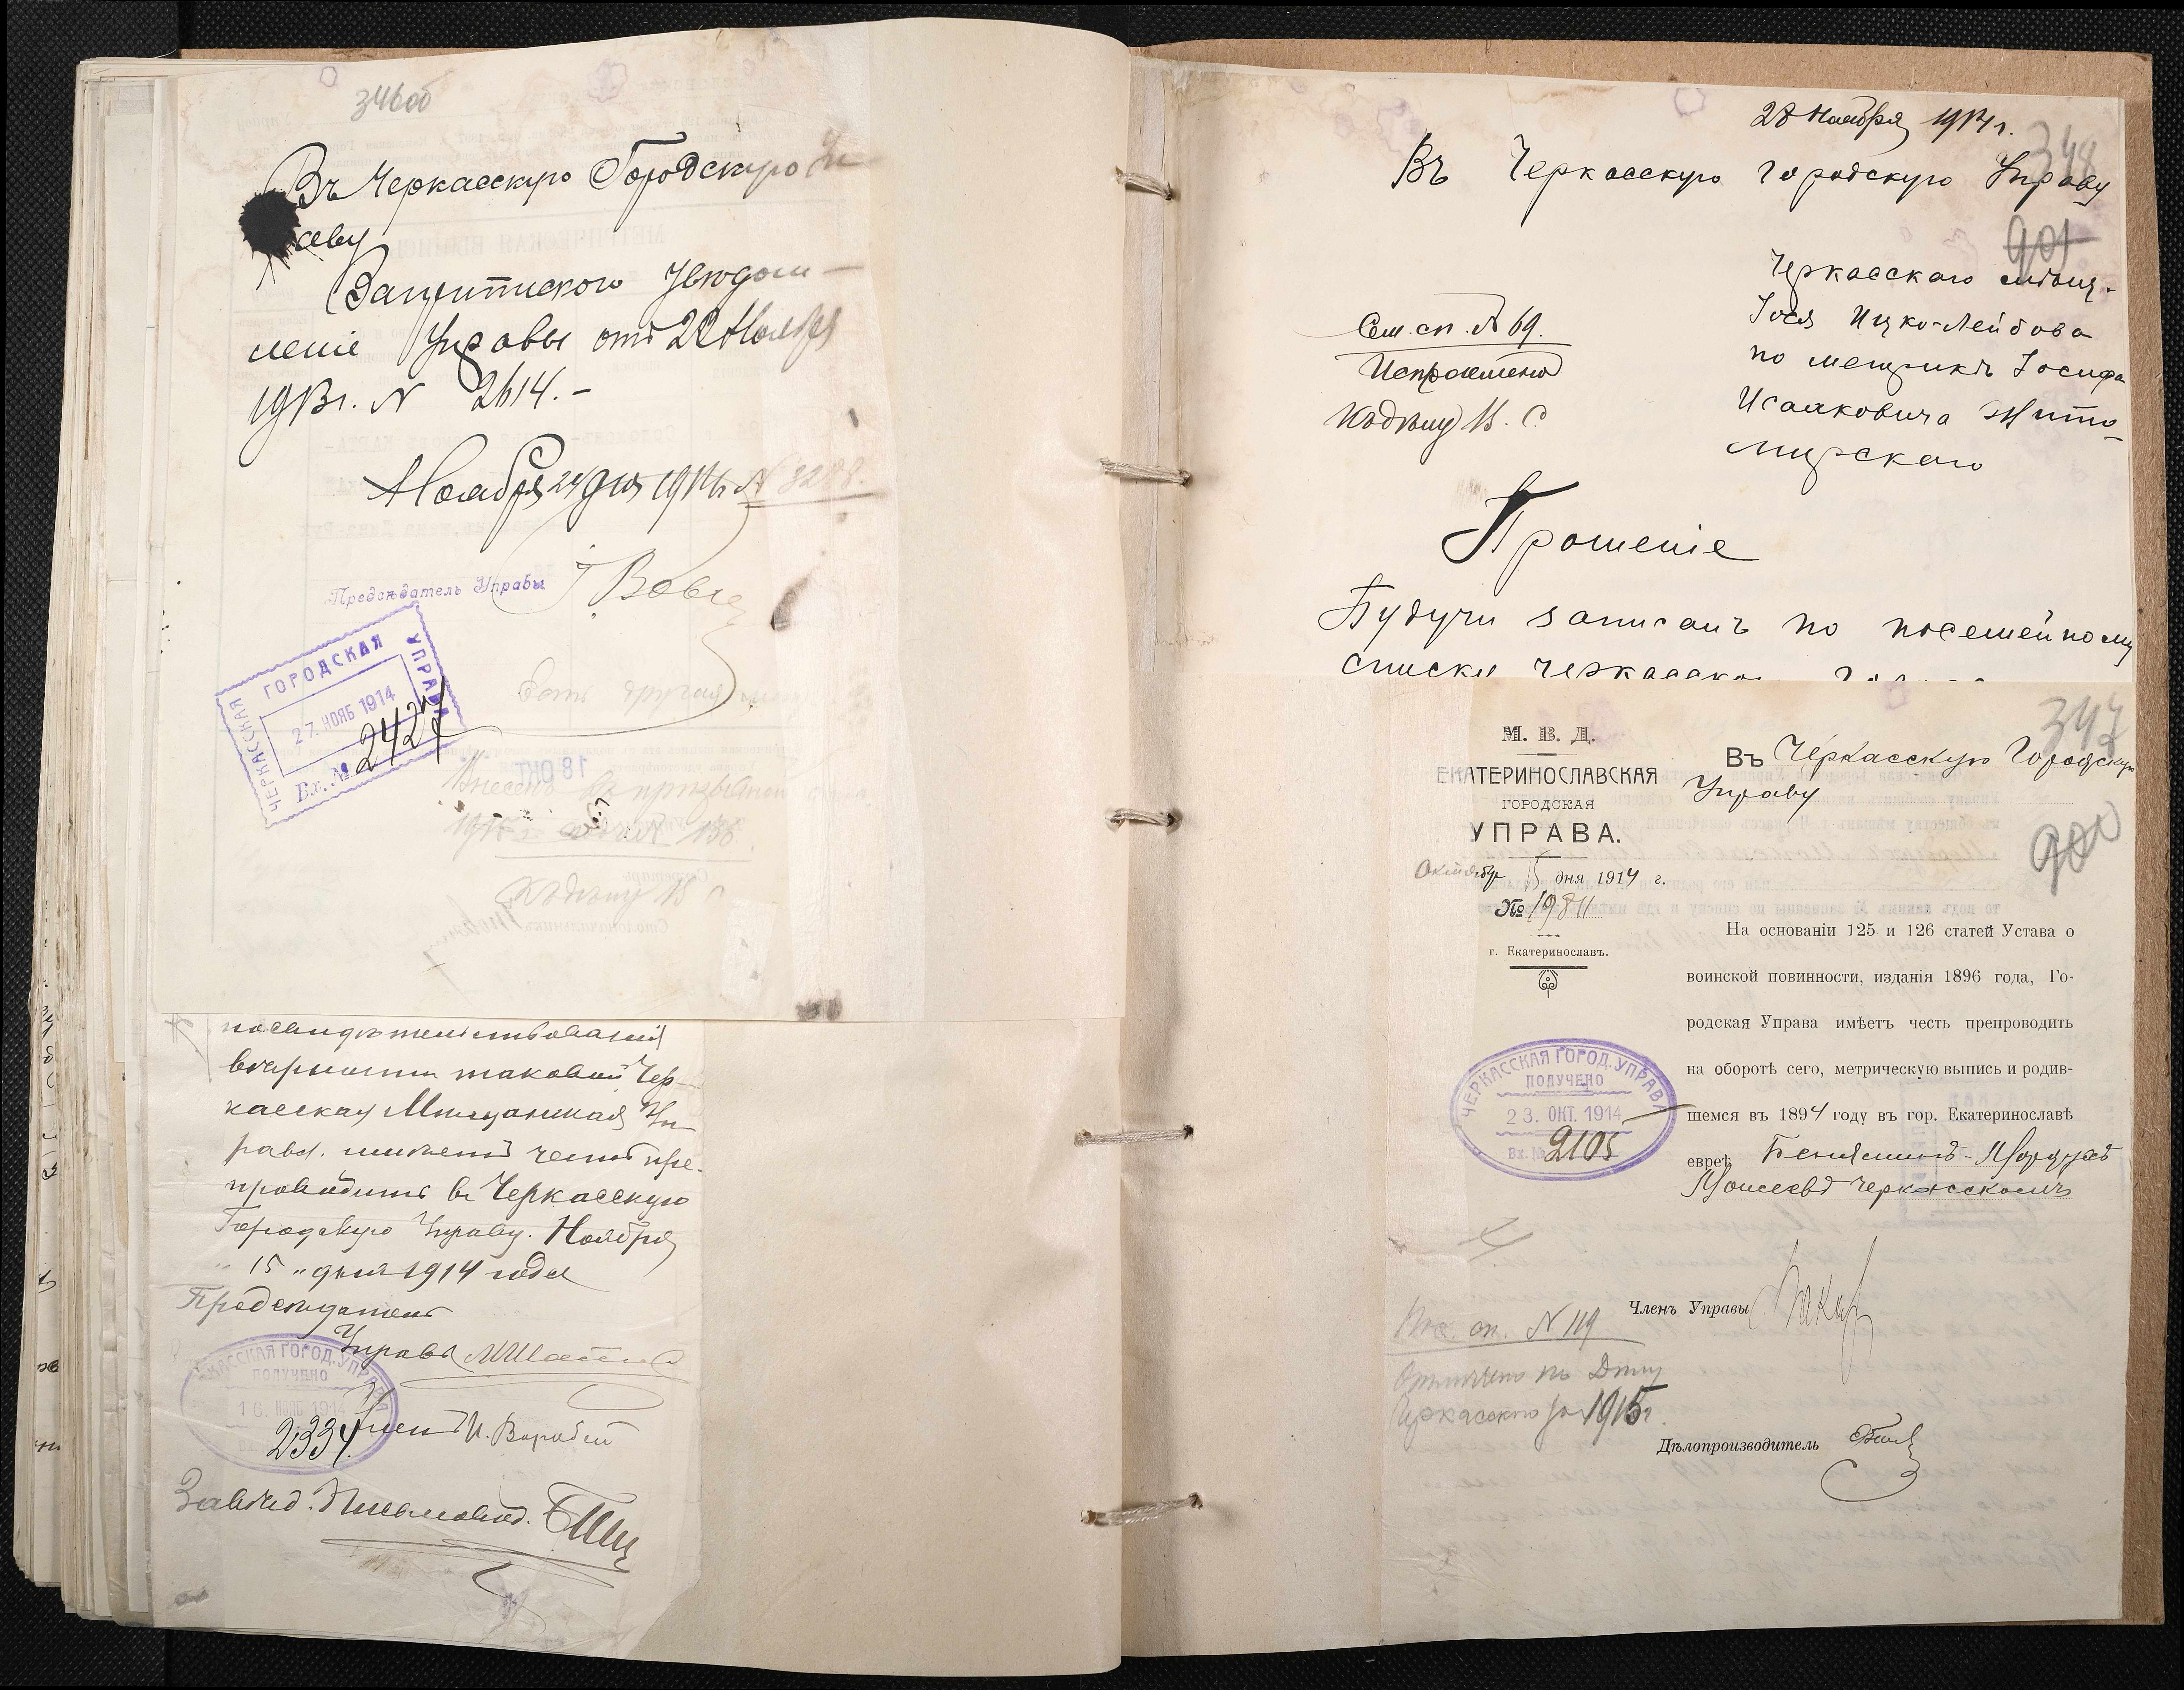 346об
Въ Черкасскую Городскую Уп
раву
уведом-
леніе Управы отъ 22 Ноября
191 г. N 2614.-
Ноября 24 дня 1914 г. N 3288.
Предсѣдатель Управы
ЧЕРКАССКАЯ ГОРОДСКАЯ УПРАВА
27. НОЯБ 1914
Вх. № 2427
Внесенъ въ призывной
136
посвидѣтельствованіи
таковой Чер-
касская Мѣщанская Уп-
рава имѣетъ честь пре-
проводить въ Черкасскую
Городскую Управу. Ноября
" 15 " дня 1914 года
Предсѣдатель
Управы
ЧЕРКАССКАЯ ГОРОД. УПРАВА
ПОЛУЧЕНО
16. НОЯБ 1914
2334.
Членъ И. Воробей
Завѣд. Письмовод.
28 Ноября 1914 г.
348
Въ Черкасскую Городскую Управу
901
Черкасскаго мѣщ.
Іося Ицко-Лейбова
по метрикѣ Іосифа
Исааковича Жито-
мирскаго
Сем. сп. N 69.
Къ дѣлу В. С.
Прошеніе
Будучи записанъ по посемейному
списку Черкасско
347
М. В. Д.
ЕКАТЕРИНОСЛАВСКАЯ
ГОРОДСКАЯ
УПРАВА.
Октября 15 дня 1914 г.
№ 19811
г. Екатеринославъ.
Въ Черкасскую Городскую
Управу
900
На основаніи 125 и 126 статей Устава о
воинской повинности, изданія 1896 года, Го-
родская Управа имѣетъ честь препроводить
на оборотѣ сего, метрическую выпись и родив-
шемся въ 1894 году въ гор. Екатеринославѣ
евреѣ Беніаминъ-Мордухъ
Моисеевъ Черкасскомъ
ЧЕРКАССКАЯ ГОРОД. УПРАВА
ПОЛУЧЕНО
23. ОКТ. 1914
Вх. № 2105
Членъ Управы
Пос. сп. N 119
Отмѣчено по
Черкасскаго за 1915 г.
Дѣлопроизводитель